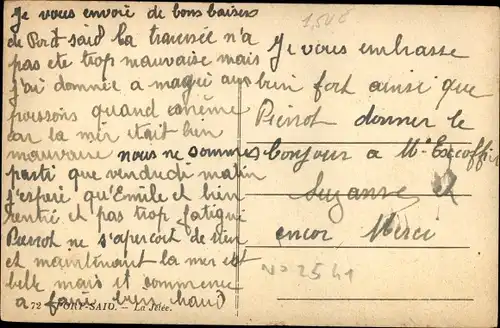 Je vous envoie de bons baisers
de Port said la traversée n'a
pas ete trop mauvaise mais
j'ai donnée a mangé aux
poissons quand même
car la mer etait bien
mauvaise nous ne sommes
parti que vendredi matin
j'espere qu'Emile et bien
rentré et pas trop fatigué
Pierrot ne s'aperçoit de rien
et maintenant la mer est
belle mais sa commence
a faire bien chaud
72 PORT-SAID. - La Jetée.
1,50€
Je vous embrasse
bien fort ainsi que
Pierrot donner le
bonjour a Me Excoffier
Suzanne et
encor Merci
No 2541